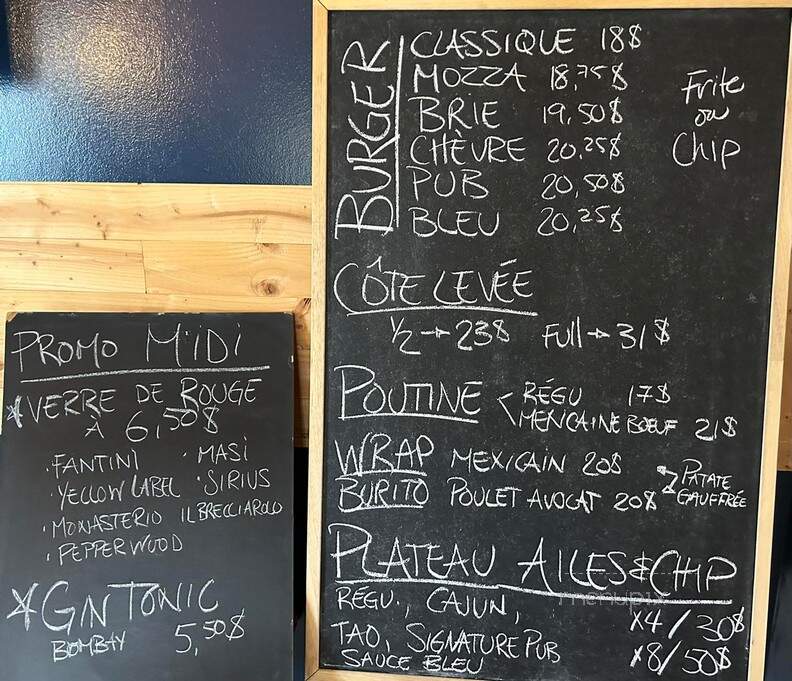 PROMO MIDI
*VERRE DE ROUGE
À 6,50$
· FANTINI · MASI
· YELLOW LABEL · SIRIUS
· MONASTERIO IL BRECCIAROLO
· PEPPERWOOD
*GIN TONIC
BOMBAY 5,50$
BURGER
CLASSIQUE 18$
MOZZA 18,75$
BRIE 19,50$
CHÈVRE 20,25$
PUB 20,50$
BLEU 20,25$
Frite
ou
Chip
CÔTE LEVÉE
1/2 → 23$ Full → 31$
POUTINE < RÉGU 17$
MEXICAINE BOEUF 21$
WRAP MEXICAIN 20$
BURITO POULET AVOCAT 20$
PATATE
GAUFFRÉE
PLATEAU AILES & CHIP
RÉGU., CAJUN,
TAO, SIGNATURE PUB
SAUCE BLEU
x4/30$
x8/50$
menupix